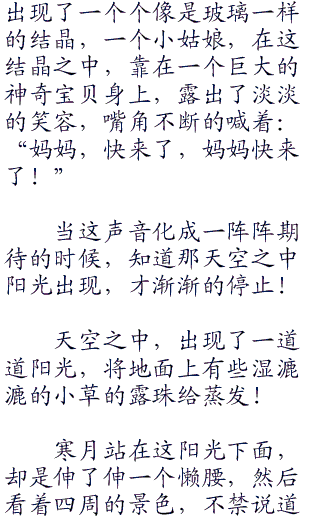 出现了一个个像是玻璃一样
的结晶，一个小姑娘，在这
结晶之中，靠在一个巨大的
神奇宝贝身上，露出了淡淡
的笑容，嘴角不断的喊着：
“妈妈，快来了，妈妈快来
了！”
当这声音化成一阵阵期
待的时候，知道那天空之中
阳光出现，才渐渐的停止！
天空之中，出现了一道
道阳光，将地面上有些湿漉
漉的小草的露珠给蒸发！
寒月站在这阳光下面，
却是伸了伸一个懒腰，然后
看着四周的景色，不禁说道